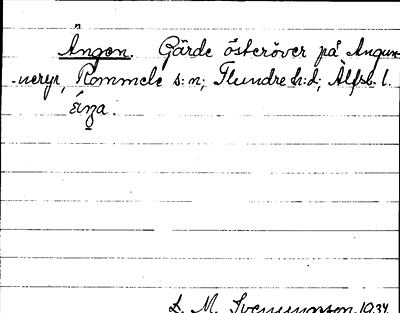 Ängen. Gärde österöver på Angun-
neryr, Rommele s:n; Flundre h:d; Älfsb. l.
D. M. Svenungsson 1934